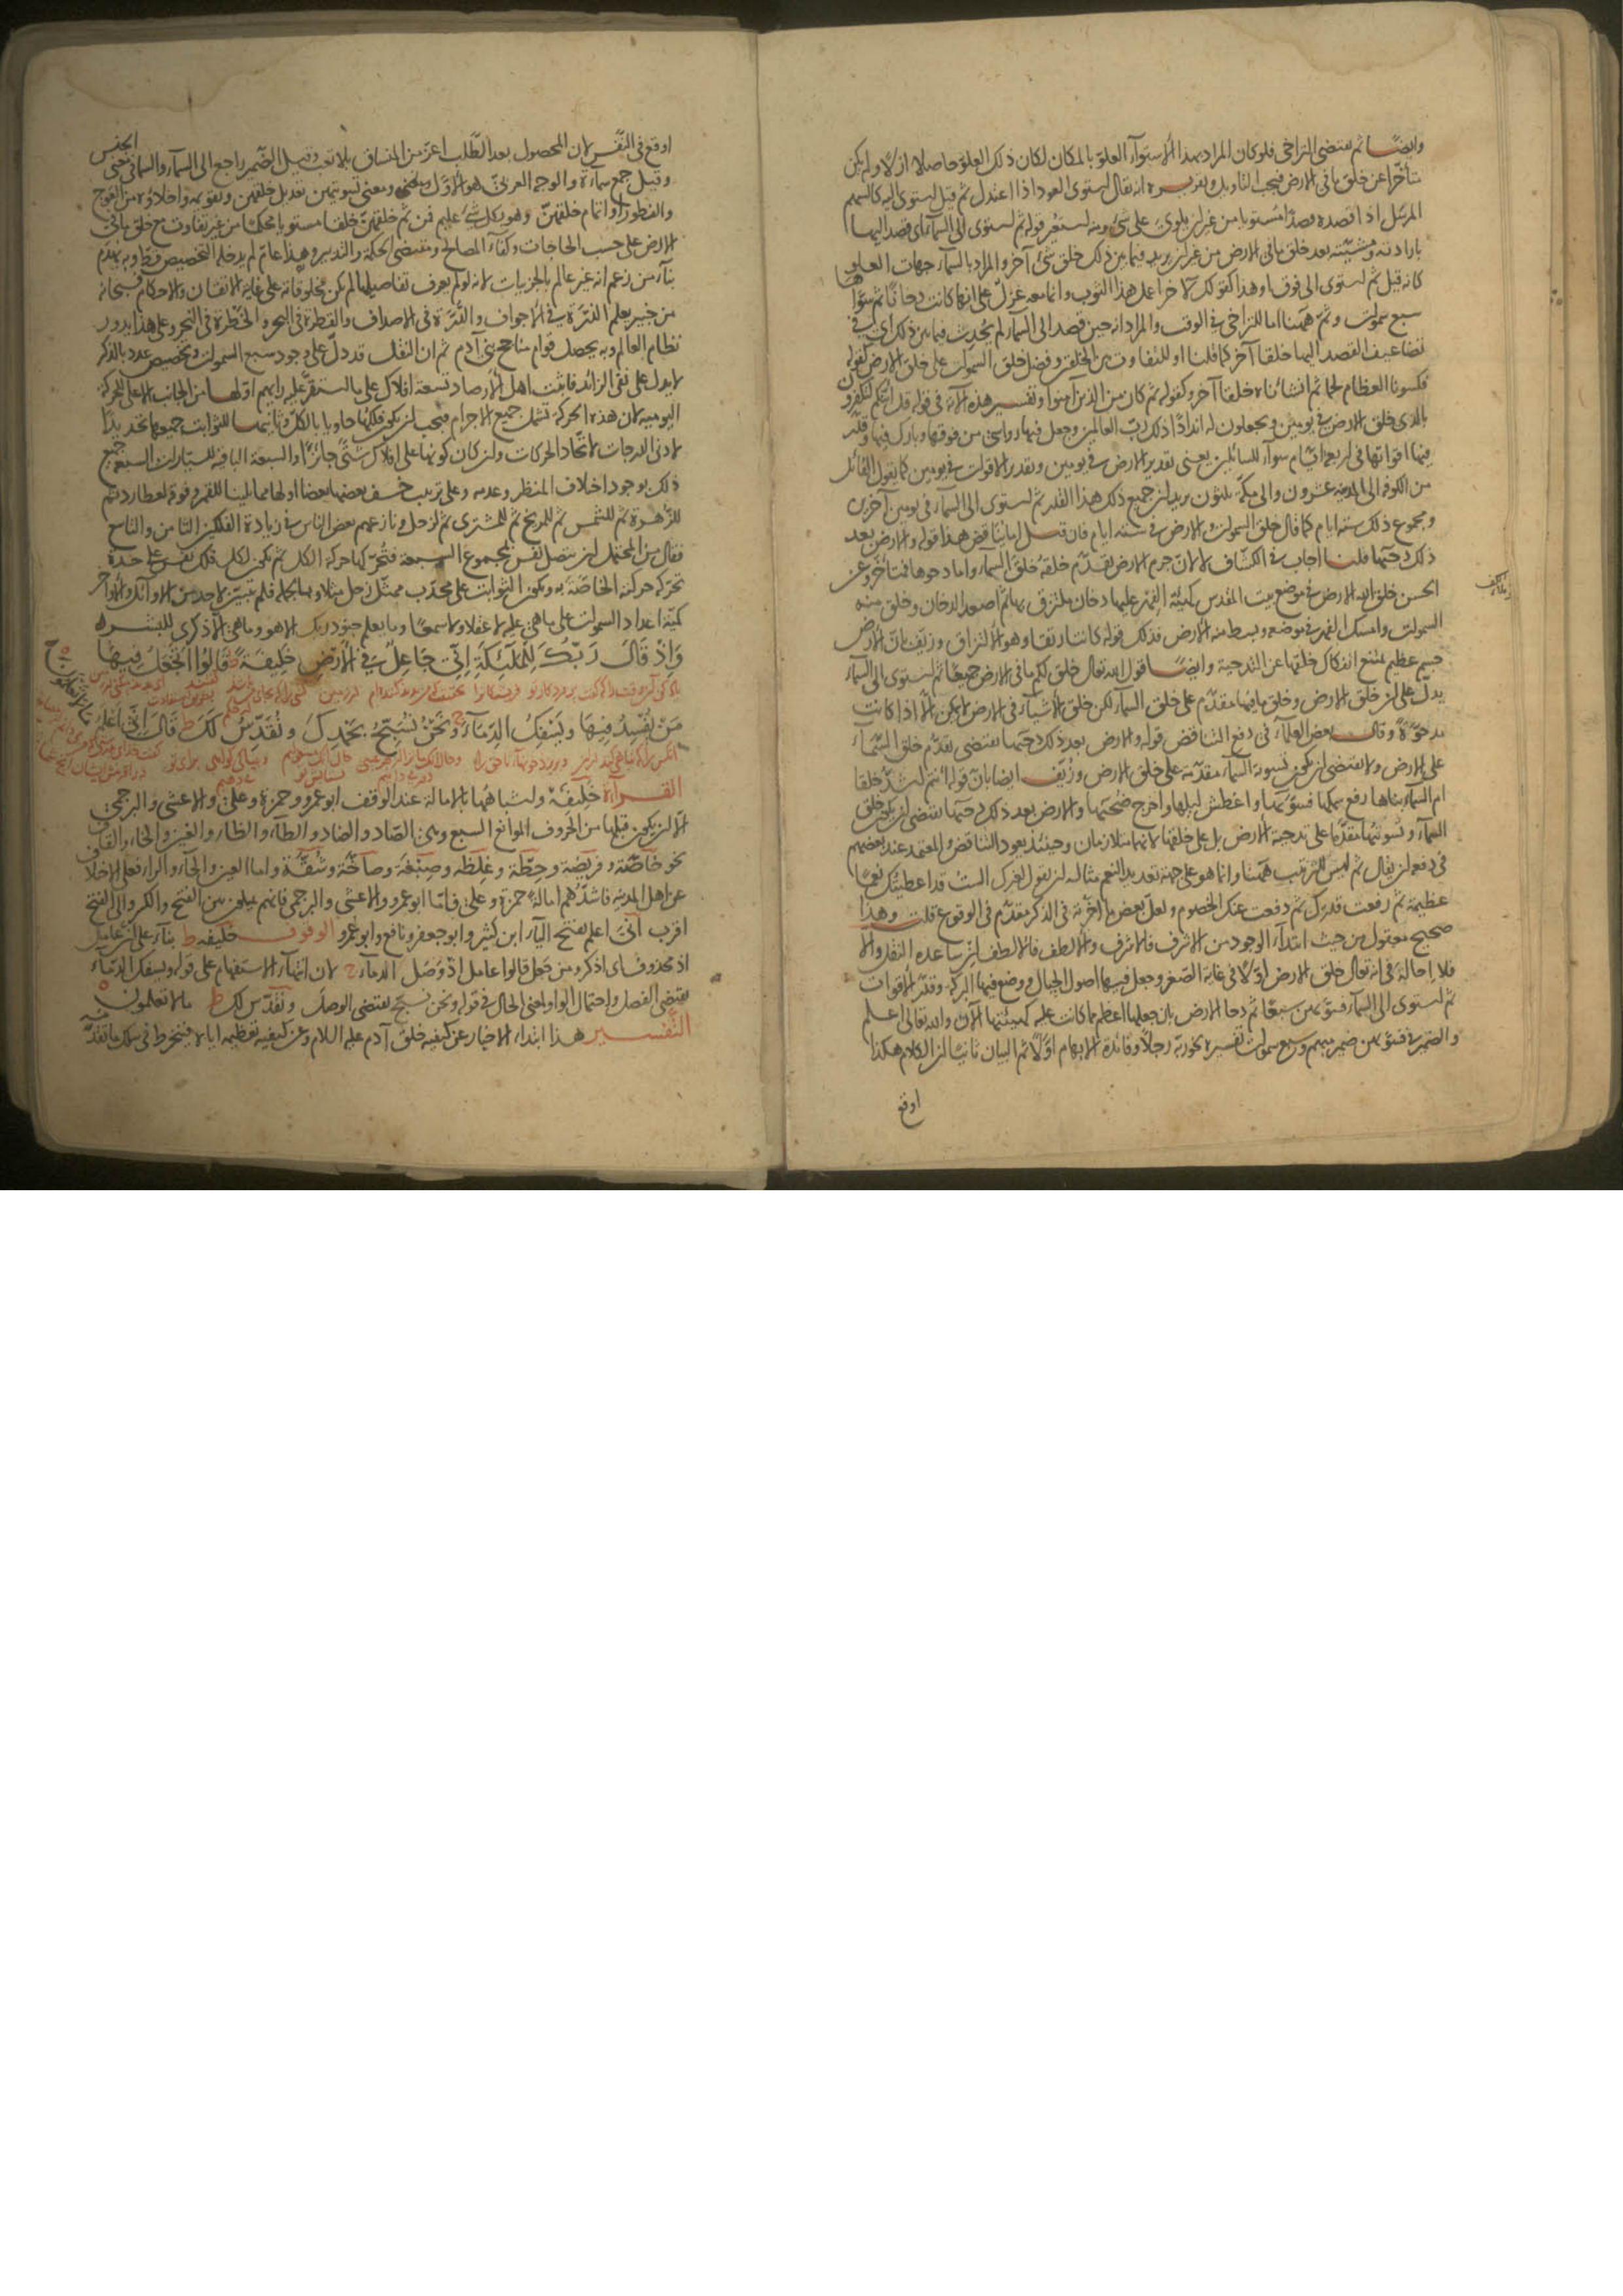 وايضا ثم يقتضى التراخى فلو كان المراد بهذا الاستوآء العلو بالمكان لكان ذلك العلو حاصلا ازلا ولم يكن
متأخرا عن خلق ما فى الارض فيجب التاويل وتقريره ان يقال استوى العود اذا اعتدل ثم قيل استوى اليه كالسهم
المرسل اذا قصده قصدا مستويا من غير ان يلوى على شئ ومنه استعير قوله ثم استوى الى السمآء اى قصد اليها
بارادته ومشيته بعد خلق ما فى الارض من غير ان يريد فيما بين ذلك خلق شئ آخر والمراد بالسمآء جهات العلو
كانه قيل ثم استوى الى فوق او هذا كقولك لآخر اعمل هذا الثوب وانما معه غزل على انها كانت دخانا ثم سواها
سبع سموات وثم ههنا اما للتراخى فى الوقت والمراد انه حين قصد الى السمآء لم يحدث فيما بين ذلك اى فى
تضاعيف القصد اليها خلقا آخر كما قلنا او للتفاوت بين الخلقين وفضل خلق السموات على خلق الارض كقوله
فكسونا العظام لحما ثم انشاناه خلقا آخر وكقوله ثم كان من الذين آمنوا وتفسير هذه الآية فى قوله قل ائنكم لتكفرون
بالذى خلق الارض فى يومين وتجعلون له اندادا ذلك رب العالمين وجعل فيها رواسى من فوقها وبارك فيها وقدر
فيها اقواتها فى اربعة ايام سوآء للسائلين يعنى تقدير الارض فى يومين وتقدير الاقوات فى يومين كما يقول القائل
من الكوفة الى المدينة عشرون والى مكة ثلثون يريد ان جميع ذلك هذا القدر ثم استوى الى السمآء فى يومين آخرين
ومجموع ذلك ستة ايام كما قال خلق السموات والارض فى ستة ايام فان قيل اما يناقض هذا قوله والارض بعد
ذلك دحيها قلنا اجاب فى الكشاف لا لان جرم الارض تقدم خلقه خلق السمآء واما دحوها فمتأخر وعن
الحسن خلق الله الارض فى موضع بيت المقدس كهيئة الفهر عليها دخان ملتزق بها ثم اصعد الدخان وخلق منه
السموات وامسك الفهر فى موضعه وبسط منه الارض فذلك قوله كانتا رتقا وهو الالتزاق وزيف بان الارض
جسم عظيم يمتنع انفكاك خلقها عن التدحية وايضا قول الله تعالى خلق لكم ما فى الارض جميعا ثم استوى الى السمآء
يدل على ان خلق الارض وخلق ما فيها مقدم على خلق السمآء لكن خلق الاشيآء فى الارض لا يمكن الا اذا كانت
مدحوة وقال بعض العلمآء فى دفع التناقض قوله والارض بعد ذلك دحيها يقتضى تقدم خلق السمآء
على الارض ولا يقتضى ان يكون تسوية السمآء مقدمة على خلق الارض وزيف ايضا بان قوله ءانتم اشد خلقا
ام السمآء بناها رفع سمكها فسويها واغطش ليلها واخرج ضحيها والارض بعد ذلك دحيها يقتضى ان يكون خلق
السمآء وتسويتها مقدما على تدحية الارض بل على خلقها لانهما متلازمان وحينئذ يعود التناقض والمعتمد عند بعضهم
فى دفعه ان يقال ثم ليس للترتيب ههنا وانما هو على جهة تعديد النعم مثاله ان تقول لغيرك اليست قد اعطيتك نعما
عظيمة ثم رفعت قدرك ثم دفعت عنك الخصوم ولعل بعض ما اخرته فى الذكر مقدم فى الوقوع قلت وهذا
صحيح معقول من حيث ابتدآء الوجود من الاشرف فالاشرف والالطف فالالطف ان ساعده النقل والا
فلا احالة فى انه تعالى خلق الارض اولا فى غاية الصغر وجعل فيها اصول الجبال ووضع فيها البركة وقدر الاقوات
ثم استوى الى السمآء فسويهن سبعا ثم دحا الارض بان جعلها اعظم مما كانت عليه كهيئتها الآن والله تعالى اعلم
والضمير فى فسويهن ضمير مبهم وسبع سموات تفسيره نحو ربه رجلا وفائدة الابهام اولا ثم البيان ثانيا ان الكلام هكذا
اوقع
اوقع فى النفس لان المحصول بعد الطلب اعز من المنساق بلا تعب وقيل الضمير راجع الى السمآء والسمآء فى معنى الجنس
وقيل جمع سمآءة والوجه العربى هو الاول ومعنى تسويتهن تعديل خلقهن وتقويمه واخلاؤه من العوج
والفطور او اتمام خلقهن وهو بكل شئ عليم فمن ثم خلقهن خلقا مستويا محكما من غير تفاوت مع خلق ما فى
الارض على حسب الحاجات وكفآء المصالح ومقتضى الحكمة والتدبير وهذا عام لم يدخله التخصيص قط وبه يهدم
بنآء من زعم انه غير عالم بالجزيات لانه لو لم يعرف تفاصيلها لم يكن مخلوقاته على غاية الاتقان والاحكام فسبحانه
من خبير يعلم الذرة فى الاجواف والدرة فى الاصداف والقطرة فى البحر والخطرة فى النحر وعلى هذا يدور
نظام العالم وبه يحصل قوام مناجح بنى آدم ثم ان النقل قد دل على وجود سبع السموات وتخصيص عدد بالذكر
لا يدل على نفى الزائد فاثبت اهل الارصاد تسعة افلاك على ما استقر عليه رايهم اولها من الجانب الاعلى للحركة
اليومية لان هذه الحركة تشمل جميع الاجرام فيجب ان يكون فلكها حاويا بالكل وثانيها للثوابت جميعها تحديدا
لادنى الدرجات لاتحاد الحركات وان كان كونها على افلاك شتى جائزا والسبعة الباقية للسيارات السبعة جميع
ذلك بوجود اختلاف المنظر وعدمه وعلى ترتيب خسف بعضها بعضا اولها مما يلينا للقمر وفوقه لعطارد ثم
للزهرة ثم للشمس ثم للمريخ ثم للمشترى ثم لزحل ونازعهم بعض الناس فى زيادة الفلكين الثامن والتاسع
فقال من المحتمل ان يتصل نفس بمجموع السبعة فتحركها حركة الكل ثم يكون لكل فلك نفس على حدة
تحركه حركته الخاصة به ويكون الثوابت على محدب ممثل زحل مثلا وبالجملة فلم يتبين لاحد من الاوآئل والاواخر
كمية اعداد السموات على ما هى عليه لا عقلا ولا سمعا وما يعلم جنود ربك الا هو وما هى الا ذكرى للبشر
وَاِذْ قَالَ رَبُّكَ لِلْمَلٰٓئِكَةِ اِنِّى جَاعِلٌ فِى الْاَرْضِ خَلِيفَةً ط قَالُوا اَتَجْعَلُ فِيهَا
مَنْ يُفْسِدُ فِيهَا وَيَسْفِكُ الدِّمَآءَ وَنَحْنُ نُسَبِّحُ بِحَمْدِكَ وَنُقَدِّسُ لَكَ ط قَالَ اِنِّى اَعْلَمُ
ما لا تعلمون
القرآءة خليفة واشباهها بالامالة عند الوقف ابو عمرو وحمزة وعلى والاعشى والبرجمى
الا ان يكون قبلها من الحروف الموانع السبع وهى الصاد والضاد والطآء والظآء والغين والخآء والقاف
نحو خاصة وفريضة وحطة وغلظة وصبغة وصاخة وشقة واما العين والحآء والرآء فعلى الاختلاف
عن اهل المدينة فاشدهم امالة حمزة وعلى فاما ابو عمرو والاعشى والبرجمى فانهم يميلون بين الفتح والكسر والى الفتح
اقرب انى اعلم بفتح اليآء ابن كثير وابو جعفر ونافع وابو عمرو الوقوف خليفة ط بنآء على ان عامل
اذ محذوف اى اذكر ومن جعل قالوا عامل اذ وصل الدمآء ج لان انتهآء الاستفهام على قوله ويسفك الدمآء
يقتضى الفصل واحتمال الواو لمعنى الحال فى قوله ونحن نسبح يقتضى الوصل ونقدس لك ط ما لا تعلمون ه
التفسير هذا ابتدآء الاخبار عن كيفية خلق آدم عليه السلام وعن كيفية تعظيمه اياه فينخرط فى سلك ما تقدمه